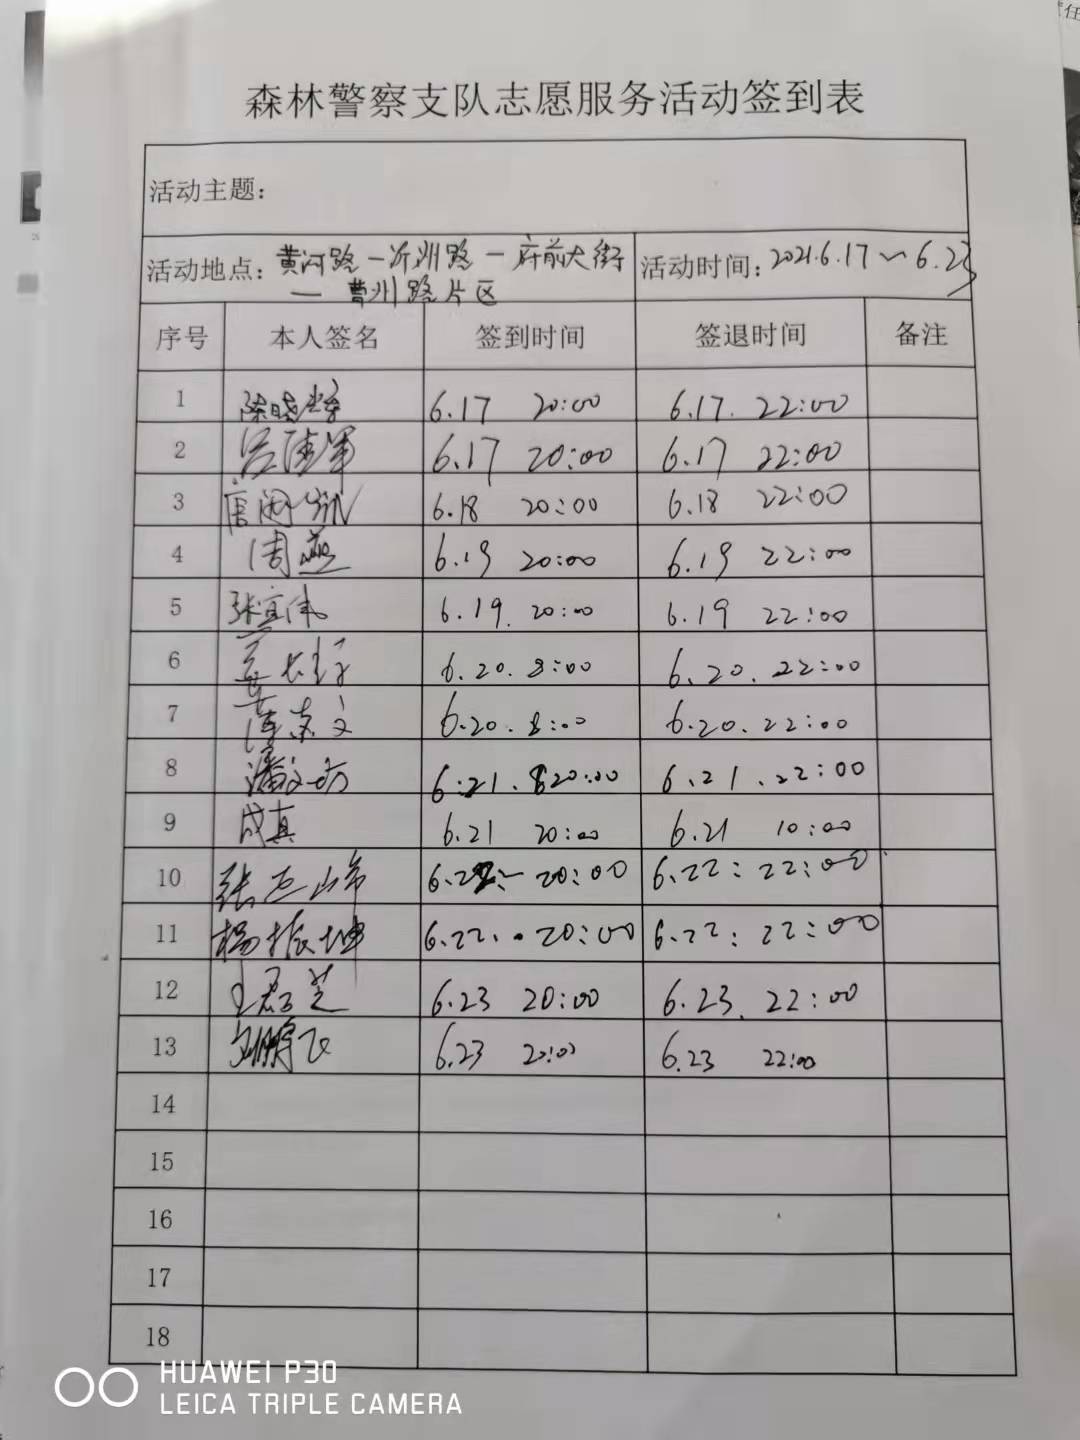 森林警察支队志愿服务活动签到表
活动主题：
活动地点：黄河路一沂州路一府前大街 活动时间：2021.6.17～6.23
一曹州路片区
序号 本人签名 签到时间 签退时间 备注
1 6.17 20:00 6.17. 22:00
2 6.17 20:00 6.17 22:00
3 6.18 20:00 6.18 22:00
4 周燕 6.19 20:00 6.19 22:00
5 张宜伟 6.19. 20:00 6.19 22:00
6 6.20.8:00 6.20.22:00
7 6.20.8:00 6.20.22:00
8 6.21. 20:00 6.21.22:00
9 成真 6.21 20:00 6.21 10:00
10 张 6.22:- 20:00 6.22: 22:00
11 杨振坤 6.22. 20:00 6.22: 22:00
12 王君芝 6.23 20:00 6.23. 22:00
13 刘鹏飞 6.23 20:00 6.23 22:00
14
15
16
17
18
HUAWEI P30
LEICA TRIPLE CAMERA